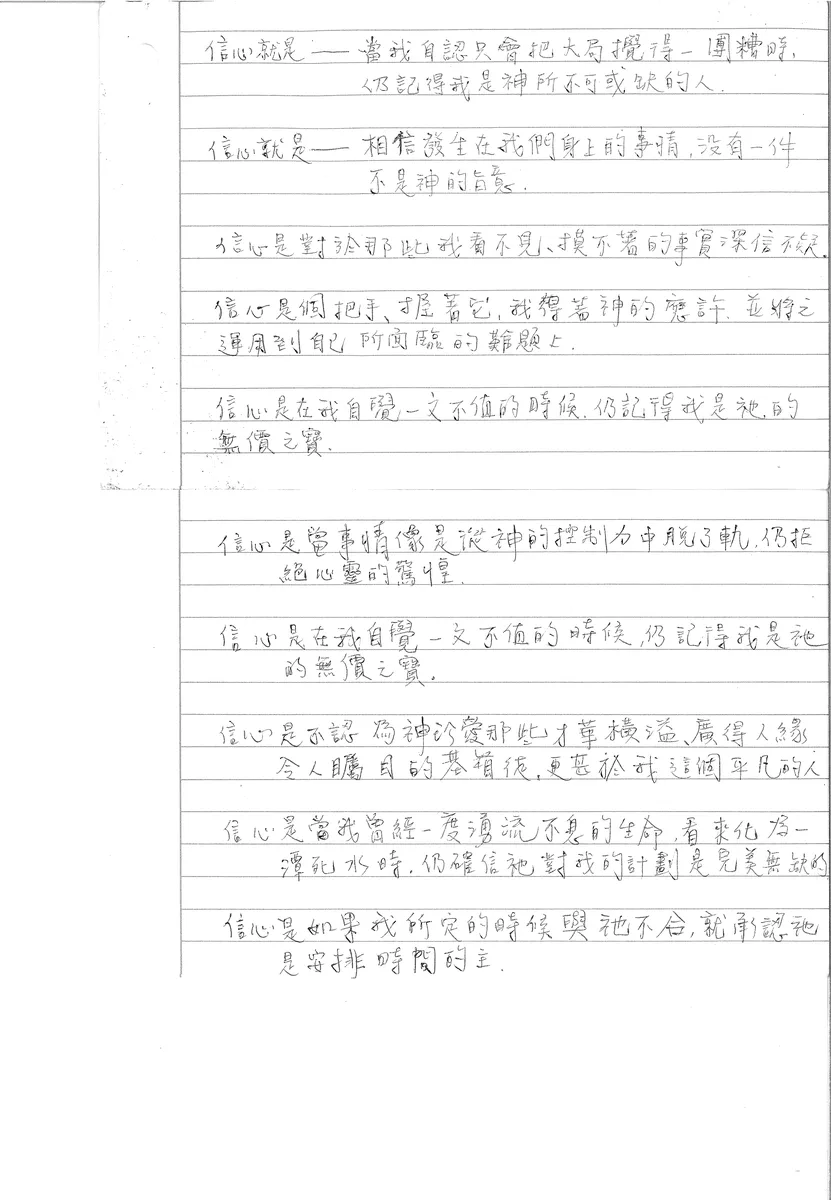 信心就是——當我自認只會把大局攪得一團糟時,
仍記得我是神所不可或缺的人.
信心就是——相信發生在我們身上的事情,没有一件
不是神的旨意.
信心是對於那些我看不見、摸不著的事實深信不疑.
信心是個把手、握著它,我得著神的應許.並將之
運用到自己所面臨的難題上.
信心是在我自覺一文不值的時候.仍記得我是祂.的
無價之寶.
信心是當事情像是從神的控制力中脫了軌,仍拒
絕心靈的驚惶.
信心是在我自覺一文不值的時候,仍記得我是祂
的無價之寶.
信心是不認為神珍愛那些才華橫溢、廣得人緣
令人矚目的基督徒,更甚於我這個平凡的人
信心是當我曾經一度湧流不息的生命,看來化為一
潭死水時,仍確信祂對我的計劃是完美無缺的
信心是如果我所定的時候與祂不合,就承認祂
是安排時間的主.